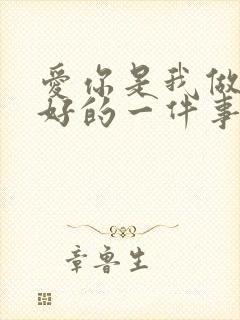 爱你是我做
好的一件事
章鲁生